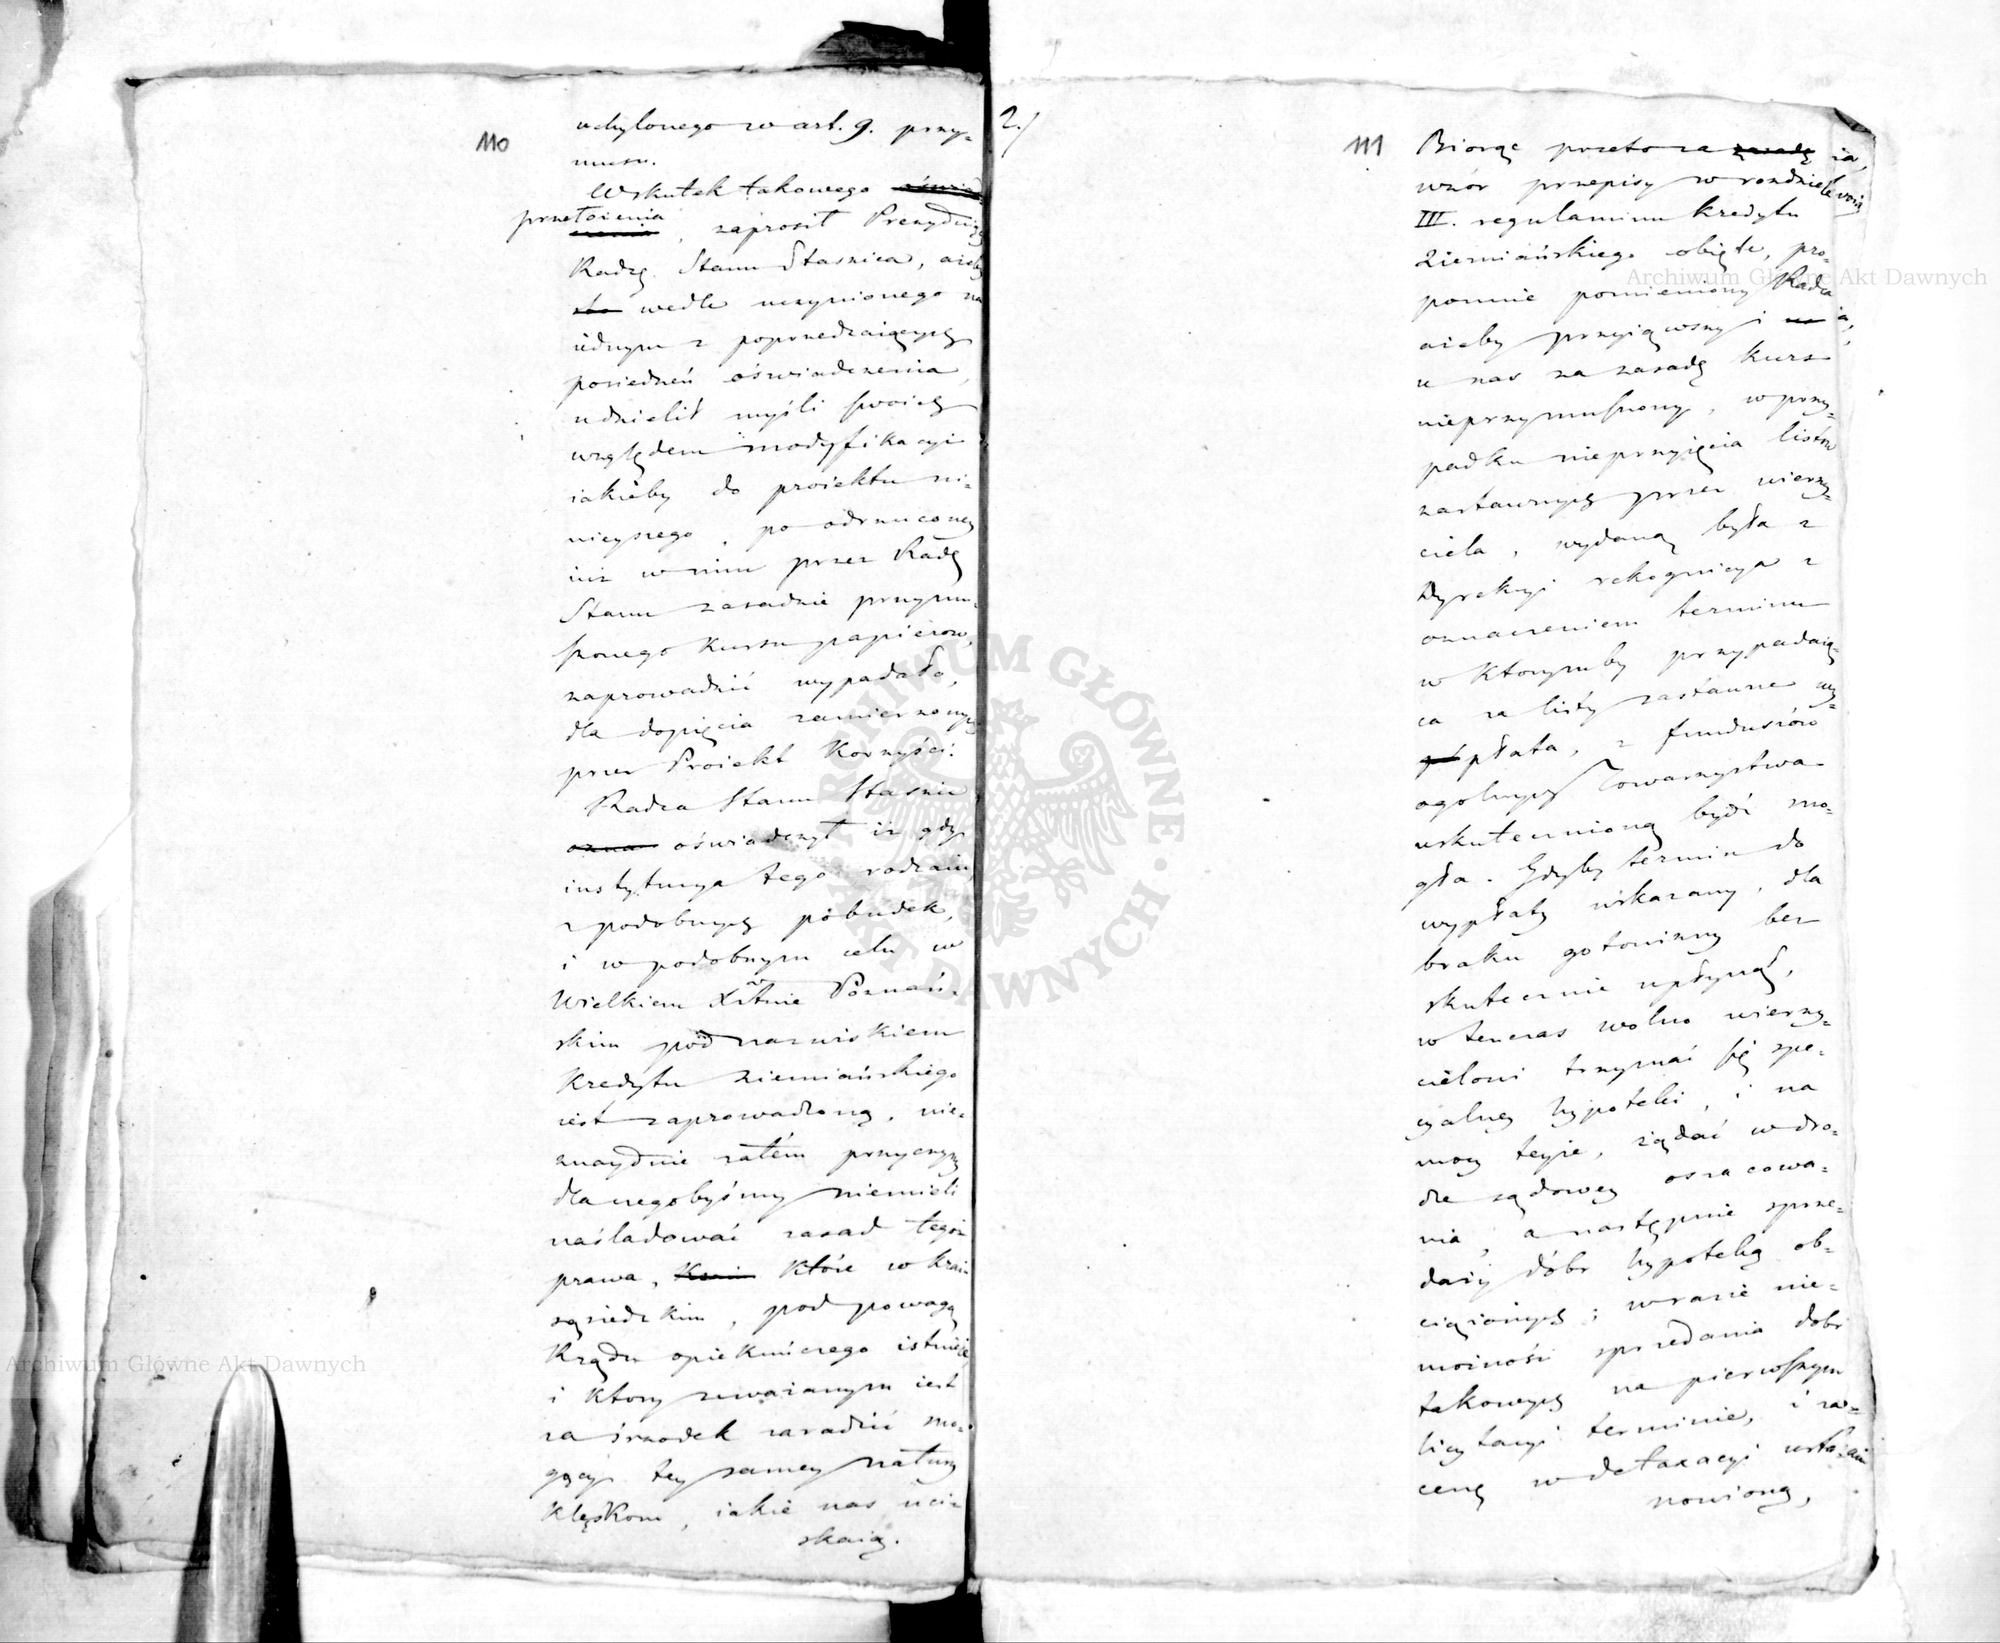 110
uchylonego w art. 9. przy-
musu.
Wskutek takowego
przełożenia, zaprosił Prezyduiący
Radzę Stanu Stasnica, ażeby
wedle uczynionego na
iednym z poprzedzaiących
posiedzeń oświadczenia,
udzielił myśli swoich
względem modyfikacyi
iakieby do proiektu ni-
nieyszego, po odrzuconey
iuż w nim przez Radę
Stanu zasadzie przymu-
szonego kursu papierów,
zaprowadzić wypadało,
dla dopięcia zamierzonych
przez Proiekt korzyści.
Radca Stanu Stasnic
oświadczył iż gdy
instytucya tego rodzaiu
z podobnych pobudek,
i w podobnym celu w
Wielkiem Xstwie Poznań-
skim pod nazwiskiem
Kredytu ziemiańskiego
iest zaprowadzoną, nie-
znayduie zatém przyczyny
dla czegobyśmy niemieli
naśladować zasad tegoż
prawa, które w kraiu
sąsiedzkim, pod powagą
Rządu opiekuńczego istnieje
i który uważanym iest
za środek zaradzić mo-
gący tey samey natury
klęskom, iakie nas uci-
skaią.
2./
111
Biorąc przeto za zasadę ia,
wzór przepisy w rozdziele
III. regulaminu kredytu
Ziemiańskiego obięte, pro-
ponuie pomieniony Radca
ażeby przyiąwszy i
u nas za zasadę kurs
nieprzymuszony, w przy-
padku nieprzyięcia listów
zastawnych przez wierzy-
ciela, wydaną była z
Dyrekcyi rekognicya z
oznaczeniem terminu
w którymby przypadaią-
ca za listy zastawne wy-
płata, z funduszów
ogólnych Towarzystwa
uskutecznioną bydź mo-
gła. Gdyby termin do
wypłaty wskazany, dla
braku gotowizny bez
skutecznie upłynął,
w tenczas wolno wierzy-
cielowi trzymać się spe-
cyalney hypoteki, i na
mocy teyże, żądać w dro-
dze sądowey oszacowa-
nia, a następnie sprze-
daży dóbr hypoteką ob-
ciążonych; w razie nie-
możności sprzedania dóbr
takowych na pierwszym
licytacyi terminie, i za
cenę w detaxacyi usta-
nowioną,